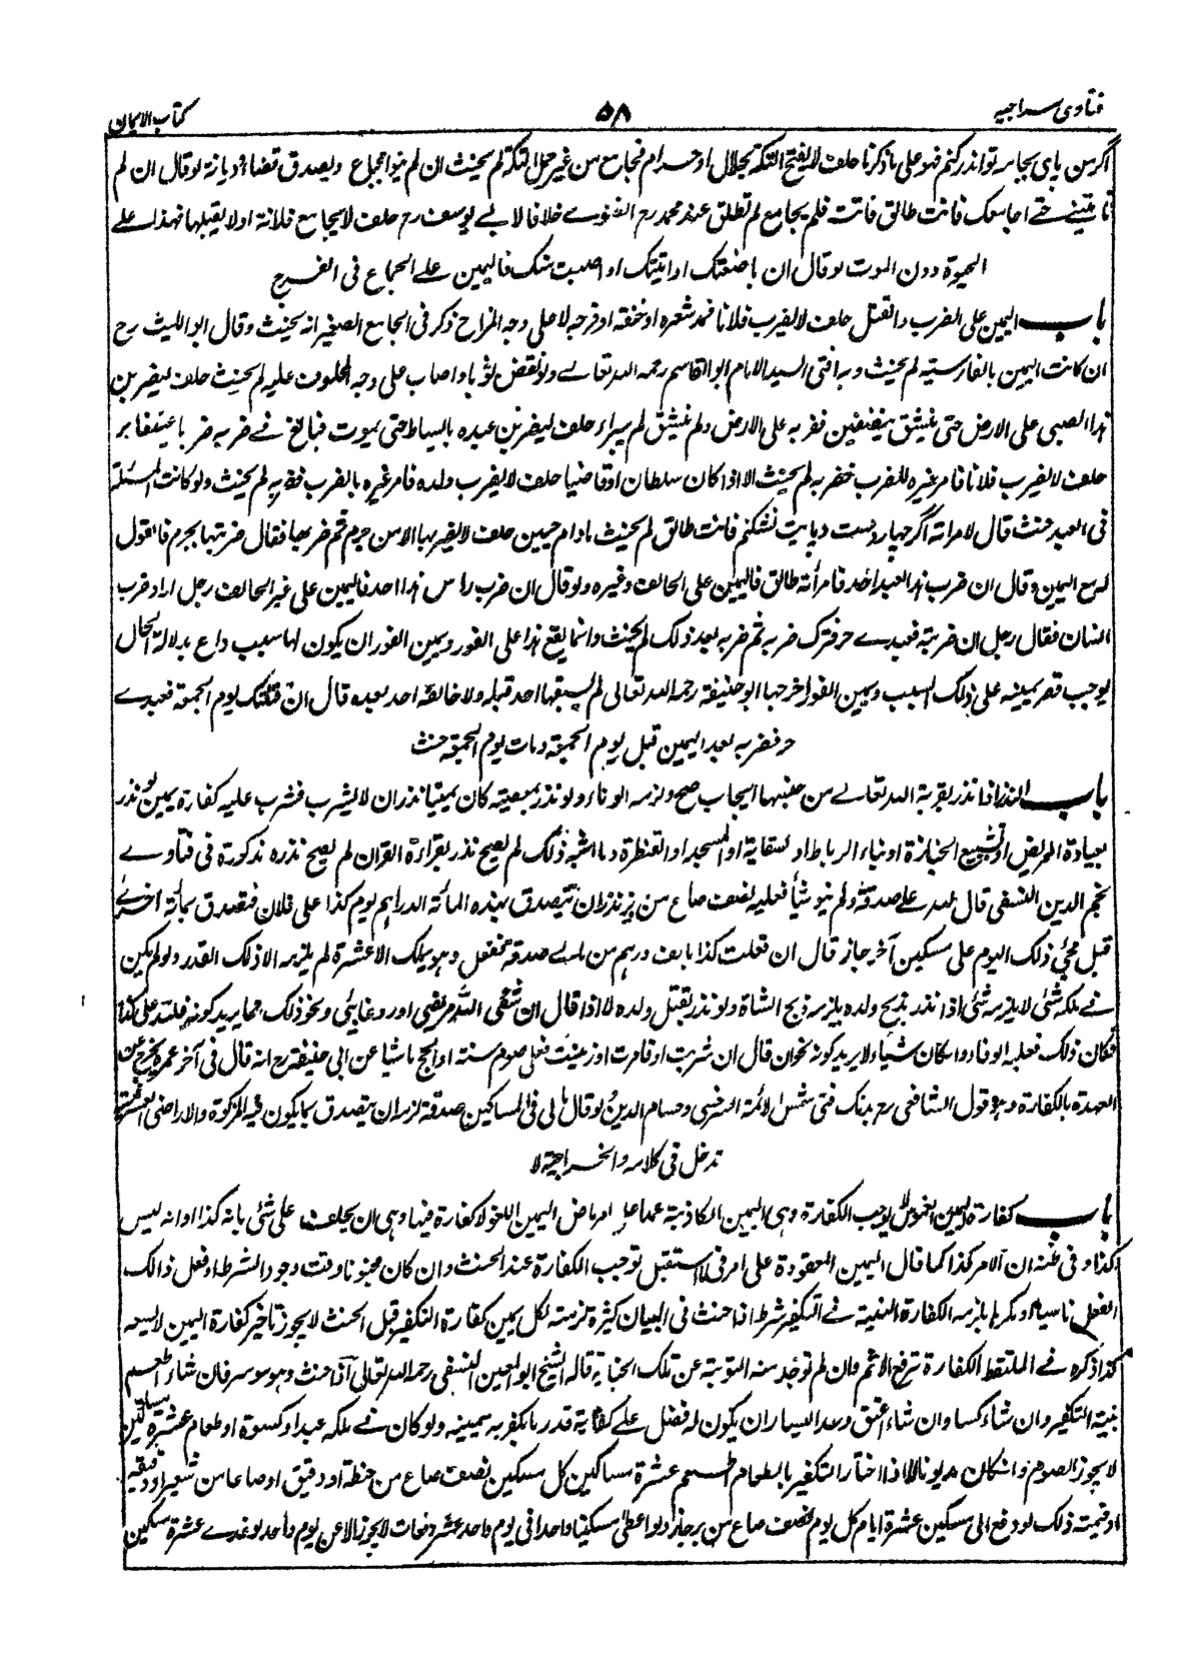 فتاوى سراجيه ٥٨ كتاب الايمان
اگر من باى بجامه تو اندر كنم فهو على ما ذكرنا حلف لا يفتح التكة بحلال او حرام فجامع من غير حل التكة لم يحنث ان لم ينو الجماع ويصدق قضاء وديانة لو قال ان لم
تاتينى حتى اجامعك فانت طالق فاتت فلم يجامع لم تطلق عند محمد رح الفتوى خلافا لابى يوسف رح حلف لا يجامع فلانة او لا يقبلها فهذا على
الحيوة دون الموت لو قال ان باضعتك او اتيتك او اصبت منك فاليمين على الجماع فى الفرج
باب اليمين على الضرب والقتل حلف لا يضرب فلانا فمد شعره او خنقه او قرحه لا على وجه المزاح ذكر فى الجامع الصغير انه يحنث وقال ابو الليث رح
ان كانت اليمين بالفارسية لم يحنث وبه افتى السيد الامام ابو القاسم رحمه الله تعالى ولو نقض ثوبا واصاب على وجه المحلوف عليه لم يحنث حلف ليضربن
هذا الصبى على الارض حتى ينشق بنصفين فضربه على الارض ولم ينشق لم يبرأ حلف ليضربن عبده بالسياط حتى يموت فبالغ فى ضربه ضربا عنيفا بر
حلف لا يضرب فلانا فامر غيره للضرب فضربه لم يحنث الا اذا كان سلطان او قاضيا حلف لا يضرب ولده فامر غيره بالضرب فضربه لم يحنث ولو كانت المسئلة
فى العبد حنث قال لامراته اگر چهار دست وپايت نشكنم فانت طالق لم يحنث ما دام حيين حلف لا يضربها الا من جرم ثم ضربها فقال ضربتها بجرم فالقول
له مع اليمين وقال ان ضرب هذا العبد احد فامرأته طالق فاليمين على الحالف وغيره ولو قال ان ضرب راس هذا احد فاليمين على غير الحالف رجل اراد ضرب
انسان فقال رجل ان ضربته فعبدى حر فترك ضربه ثم ضربه بعد ذلك لم يحنث وانما يقع هذا على الفور ويمين الفور ان يكون لها سبب داع بدلالة الحال
يوجب قصر يمينه على ذلك السبب ويمين الفور اخرجها ابو حنيفة رحمه الله تعالى لم يسبقها احد قبله ولا خالفه احد بعده قال ان قتلتك يوم الجمعة فعبدى
حر فضربه بعد اليمين قبل يوم الجمعة ومات يوم الجمعة حنث
باب النذر اذا نذر بقربة لله تعالى من جنسها ايجاب صح ولزمه الوفاء ولو نذر بمعصية كان يمينا نذر ان لا يشرب فشرب عليه كفارة يمين لو نذر
بعيادة المريض او تشييع الجنازة او بناء الرباط او لسقاية او المسجد او القنطرة وما اشبه ذلك لم يصح نذر بقراءة القران لم يصح نذره مذكورة فى فتاوى
نجم الدين النسفى قال لله على صدقة ولم ينو شيأ فعليه نصف صاع من بر نذر ان يتصدق بهذه المائة الدراهم يوم كذا على فلان فتصدق بمائة اخرى
قبل مجئ ذلك اليوم على مسكين آخر جاز قال ان فعلت كذا بالف درهم من مالى صدقة ففعل وهو يملك الا عشرة لم يلزمه الا ذلك القدر ولو لم يكن
فى ملكه شئ لا يلزمه شئ اذا نذر بذبح ولده يلزمه ذبح الشاة ولو نذر بقتل ولده لا اذا قال ان شفى الله مريضى او رد غايبى ونحو ذلك مما يريد كونه فلله على كذا
فكان ذلك فعليه الوفاء وان كان شيأ لا يريد كونه نحو ان قال ان شربت او قامرت او زنيت فعلى صوم سنة او الحج ماشيا عن ابى حنيفة رح انه قال فى آخر عمره يخرج عن
العهدة بالكفارة وهو قول الشافعى رح بذلك افتى شمس الائمة السرخسى وحسام الدين لو قال مالى فى المساكين صدقة لزمه ان يتصدق بما يكون فيه الزكوة والاراضى العشرية
تدخل فى كلامه والخراجية لا
باب كفارة اليمين اليمين الغموس لا يوجب الكفارة وهى اليمين الكاذبة عمدا على امر ماض اليمين اللغو لا كفارة فيها وهى ان يحلف على شئ بانه كذا او انه ليس
كذا وفى ظنه ان الامر كذا كما قال اليمين المعقودة على امر فى المستقبل توجب الكفارة عند الحنث وان كان مجنونا وقت وجود الشرط او فعل ذالك
الفعل ناسيا او مكرها يلزمه الكفارة النية فى التكفير شرط اذا حنث فى ايمان كثيرة لزمته لكل يمين كفارة التكفير قبل الحنث لا يجوز تاخير كفارة اليمين لا يسعه
كذا ذكره فى الملتقط الكفارة ترفع الاثم وان لم توجد منه التوبة عن تلك الجناية قاله الشيخ ابو المعين النسفى رحمه الله تعالى اذا حنث وهو موسر فان شاء اطعم
بنية التكفير وان شاء كسا وان شاء اعتق وحد اليسار ان يكون له فضل على كفاية قدر ما يكفر به يمينه ولو كان فى ملكه عبد او كسوة او طعام عشرة مساكين
لا يجوز الصوم وانكان مديونا الا اذا اختار التكفير بالطعام اطعم عشرة مساكين كل مسكين نصف صاع من حنطة او دقيق او صاعا من شعير او دقيقه
او قيمته ذلك لو دفع الى مسكين عشرة ايام كل يوم نصف صاع من بر جاز ولو اعطى مسكينا واحدا فى يوم واحد عشر دفعات لا يجوز الا عن يوم واحد لو غدى عشرة مسكين